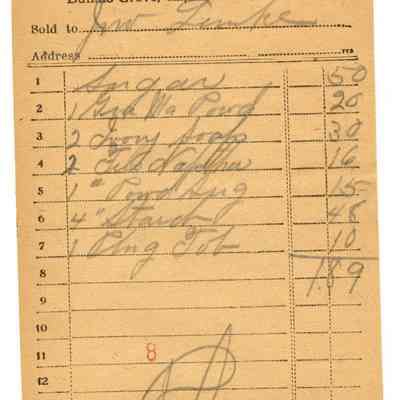 Sold to Jno Timke
Address
1 Sugar 50
2 1 Gra Wa Powd 20
3 2 Ivory Soap 30
4 2 Fels Naptha 16
5 1 " Powd Sug 15
6 4 " Starch 48
7 1 Plug Tob 10
8 1.89
9
10
11 8
12